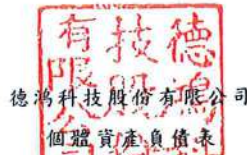 德鴻科技股份有限公司
個體資產負債表